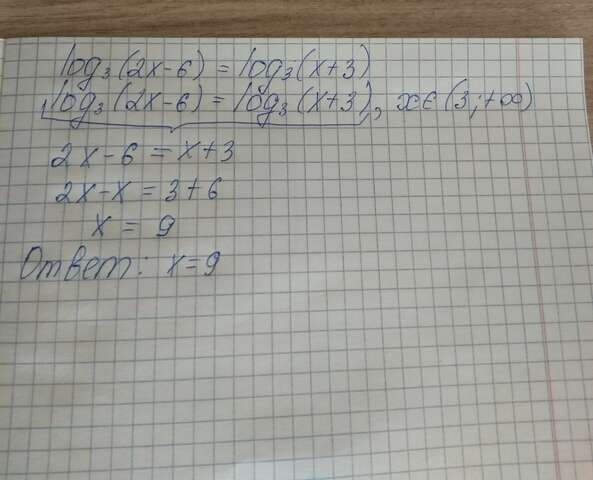 log₃(2x-6) = log₃(x+3)
log₃(2x-6) = log₃(x+3), x∈(3;+∞)
2x-6 = x+3
2x-x = 3+6
x = 9
Ответ: x=9